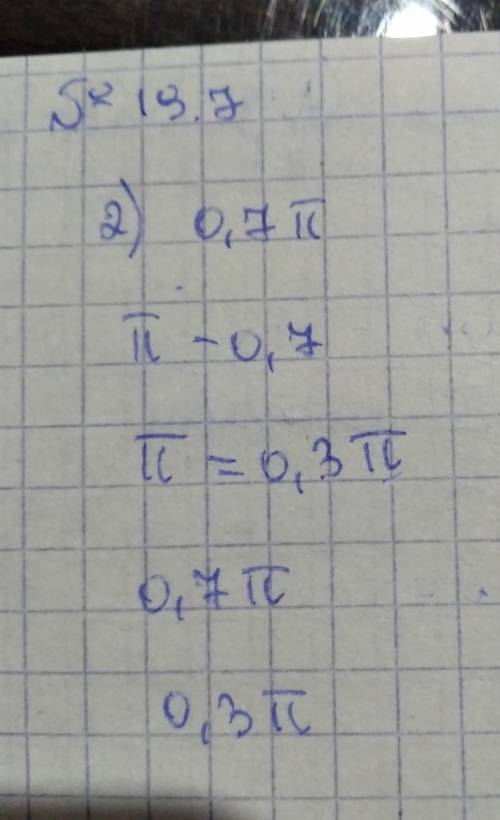 № 19.7
2) 0,7π
π - 0,7
π = 0,3π
0,7π
0,3π